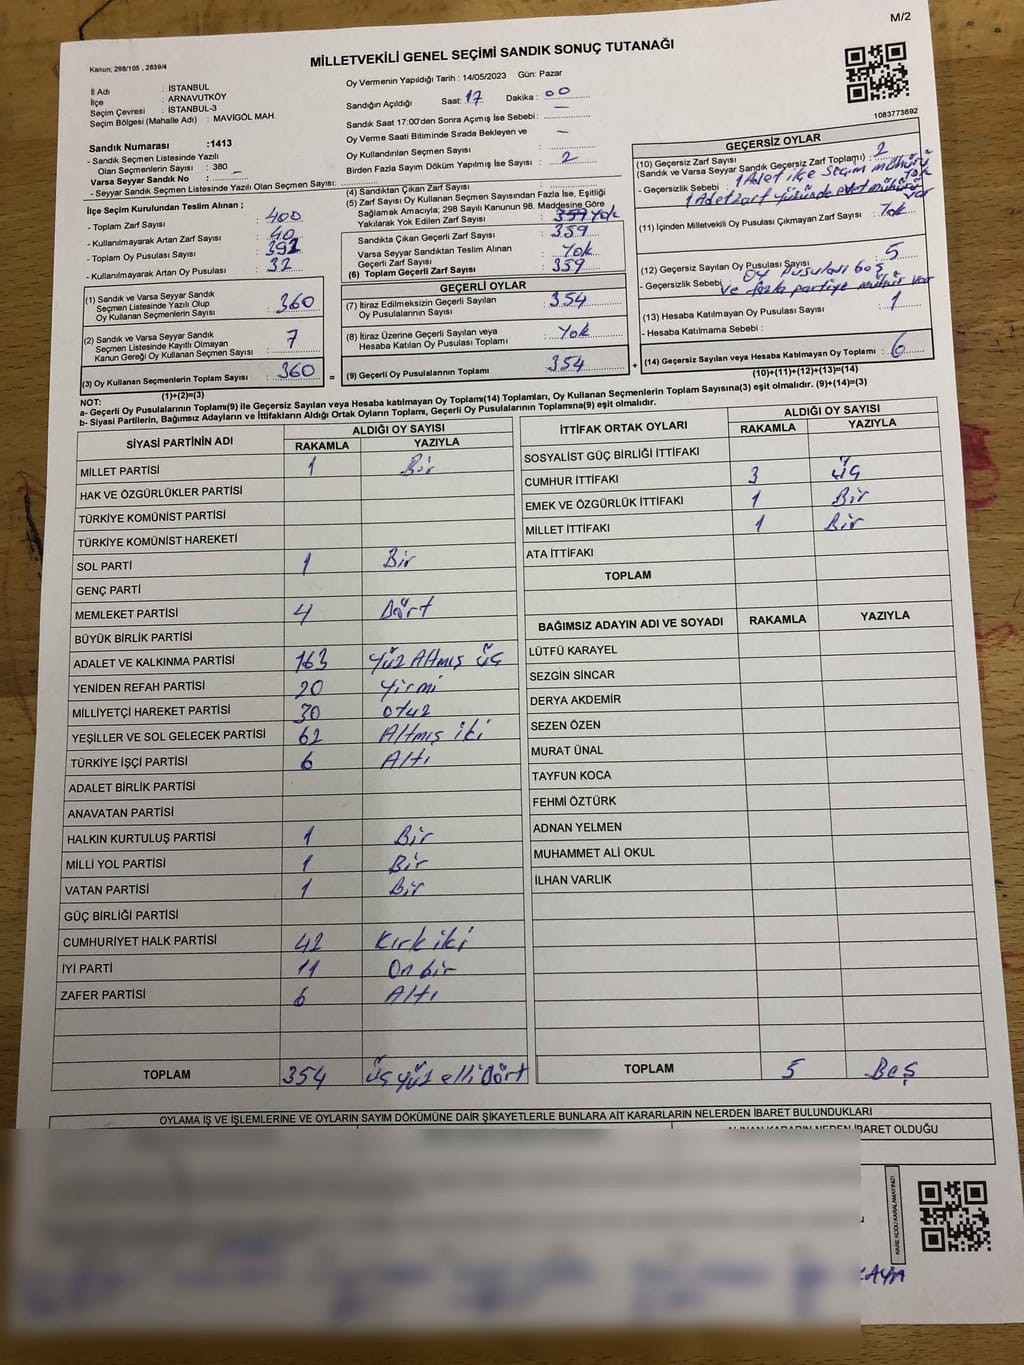 M/2
MİLLETVEKİLİ GENEL SEÇİMİ SANDIK SONUÇ TUTANAĞI
Kanun; 298/105 , 2839/4
İl Adı : İSTANBUL
İlçe : ARNAVUTKÖY
Seçim Çevresi : İSTANBUL-3
Seçim Bölgesi (Mahalle Adı) : MAVİGÖL MAH.
Sandık Numarası :1413
- Sandık Seçmen Listesinde Yazılı
Olan Seçmenlerin Sayısı : 380
Varsa Seyyar Sandık No : –
- Seyyar Sandık Seçmen Listesinde Yazılı Olan Seçmen Sayısı:
İlçe Seçim Kurulundan Teslim Alınan ;
- Toplam Zarf Sayısı : 400
- Kullanılmayarak Artan Zarf Sayısı : 40
- Toplam Oy Pusulası Sayısı : 392
- Kullanılmayarak Artan Oy Pusulası : 32
(1) Sandık ve Varsa Seyyar Sandık
Seçmen Listesinde Yazılı Olup
Oy Kullanan Seçmenlerin Sayısı : 360
(2) Sandık ve Varsa Seyyar Sandık
Seçmen Listesinde Kayıtlı Olmayan
Kanun Gereği Oy Kullanan Seçmen Sayısı : 7
(3) Oy Kullanan Seçmenlerin Toplam Sayısı : 360
(1)+(2)=(3)
Oy Vermenin Yapıldığı Tarih : 14/05/2023 Gün: Pazar
Sandığın Açıldığı Saat: 17 Dakika : 00
Sandık Saat 17:00'den Sonra Açımış İse Sebebi: –
Oy Verme Saati Bitiminde Sırada Bekleyen ve
Oy Kullandırılan Seçmen Sayısı : –
Birden Fazla Sayım Döküm Yapılmış İse Sayısı : 2
(4) Sandıktan Çıkan Zarf Sayısı
(5) Zarf Sayısı Oy Kullanan Seçmen Sayısından Fazla İse, Eşitliği
Sağlamak Amacıyla, 298 Sayılı Kanunun 98. Maddesine Göre
Yakılarak Yok Edilen Zarf Sayısı : 359 Yok
Sandıkta Çıkan Geçerli Zarf Sayısı : 359
Varsa Seyyar Sandıktan Teslim Alınan
Geçerli Zarf Sayısı : Yok
(6) Toplam Geçerli Zarf Sayısı : 359
GEÇERLİ OYLAR
(7) İtiraz Edilmeksizin Geçerli Sayılan
Oy Pusulalarının Sayısı : 354
(8) İtiraz Üzerine Geçerli Sayılan veya
Hesaba Katılan Oy Pusulası Toplamı : Yok
(9) Geçerli Oy Pusulalarının Toplamı : 354
1083773692
GEÇERSİZ OYLAR
(10) Geçersiz Zarf Sayısı
(Sandık ve Varsa Seyyar Sandık Geçersiz Zarf Toplamı) : 2
- Geçersizlik Sebebi : 1 Adet ilçe Seçim mühürü yok
1 Adet zarf yüzünde evet mühürü var
(11) İçinden Milletvekili Oy Pusulası Çıkmayan Zarf Sayısı : Yok
(12) Geçersiz Sayılan Oy Pusulası Sayısı : 5
- Geçersizlik Sebebi : Oy Pusulası boş
ve fazla partiye mühür var
(13) Hesaba Katılmayan Oy Pusulası Sayısı : 1
- Hesaba Katılmama Sebebi :
(14) Geçersiz Sayılan veya Hesaba Katılmayan Oy Toplamı : 6
(10)+(11)+(12)+(13)=(14)
NOT:
a- Geçerli Oy Pusulalarının Toplamı(9) ile Geçersiz Sayılan veya Hesaba katılmayan Oy Toplam(14) Toplamları, Oy Kullanan Seçmenlerin Toplam Sayısına(3) eşit olmalıdır. (9)+(14)=(3)
b- Siyasi Partilerin, Bağımsız Adayların ve İttifakların Aldığı Ortak Oyların Toplamı, Geçerli Oy Pusulalarının Toplamına(9) eşit olmalıdır.
SİYASİ PARTİNİN ADI ALDIĞI OY SAYISI
RAKAMLA YAZIYLA
MİLLET PARTİSİ 1 Bir
HAK VE ÖZGÜRLÜKLER PARTİSİ
TÜRKİYE KOMÜNİST PARTİSİ
TÜRKİYE KOMÜNİST HAREKETİ
SOL PARTİ 1 Bir
GENÇ PARTİ
MEMLEKET PARTİSİ 4 Dört
BÜYÜK BİRLİK PARTİSİ
ADALET VE KALKINMA PARTİSİ 163 Yüz Altmış üç
YENİDEN REFAH PARTİSİ 20 Yirmi
MİLLİYETÇİ HAREKET PARTİSİ 30 Otuz
YEŞİLLER VE SOL GELECEK PARTİSİ 62 Altmış iki
TÜRKİYE İŞÇİ PARTİSİ 6 Altı
ADALET BİRLİK PARTİSİ
ANAVATAN PARTİSİ
HALKIN KURTULUŞ PARTİSİ 1 Bir
MİLLİ YOL PARTİSİ 1 Bir
VATAN PARTİSİ 1 Bir
GÜÇ BİRLİĞİ PARTİSİ
CUMHURİYET HALK PARTİSİ 42 Kırk iki
İYİ PARTİ 11 On bir
ZAFER PARTİSİ 6 Altı
TOPLAM 354 üç yüz elli Dört
İTTİFAK ORTAK OYLARI ALDIĞI OY SAYISI
RAKAMLA YAZIYLA
SOSYALİST GÜÇ BİRLİĞİ İTTİFAKI
CUMHUR İTTİFAKI 3 üç
EMEK VE ÖZGÜRLÜK İTTİFAKI 1 Bir
MİLLET İTTİFAKI 1 Bir
ATA İTTİFAKI
TOPLAM
BAĞIMSIZ ADAYIN ADI VE SOYADI RAKAMLA YAZIYLA
LÜTFÜ KARAYEL
SEZGİN SİNCAR
DERYA AKDEMİR
SEZEN ÖZEN
MURAT ÜNAL
TAYFUN KOCA
FEHMİ ÖZTÜRK
ADNAN YELMEN
MUHAMMET ALİ OKUL
İLHAN VARLIK
TOPLAM 5 Beş
OYLAMA İŞ VE İŞLEMLERİNE VE OYLARIN SAYIM DÖKÜMÜNE DAİR ŞİKAYETLERLE BUNLARA AİT KARARLARIN NELERDEN İBARET BULUNDUKLARI
ALINAN KARARIN NEDEN İBARET OLDUĞU
KARE KODU KARALAMAYINIZ!